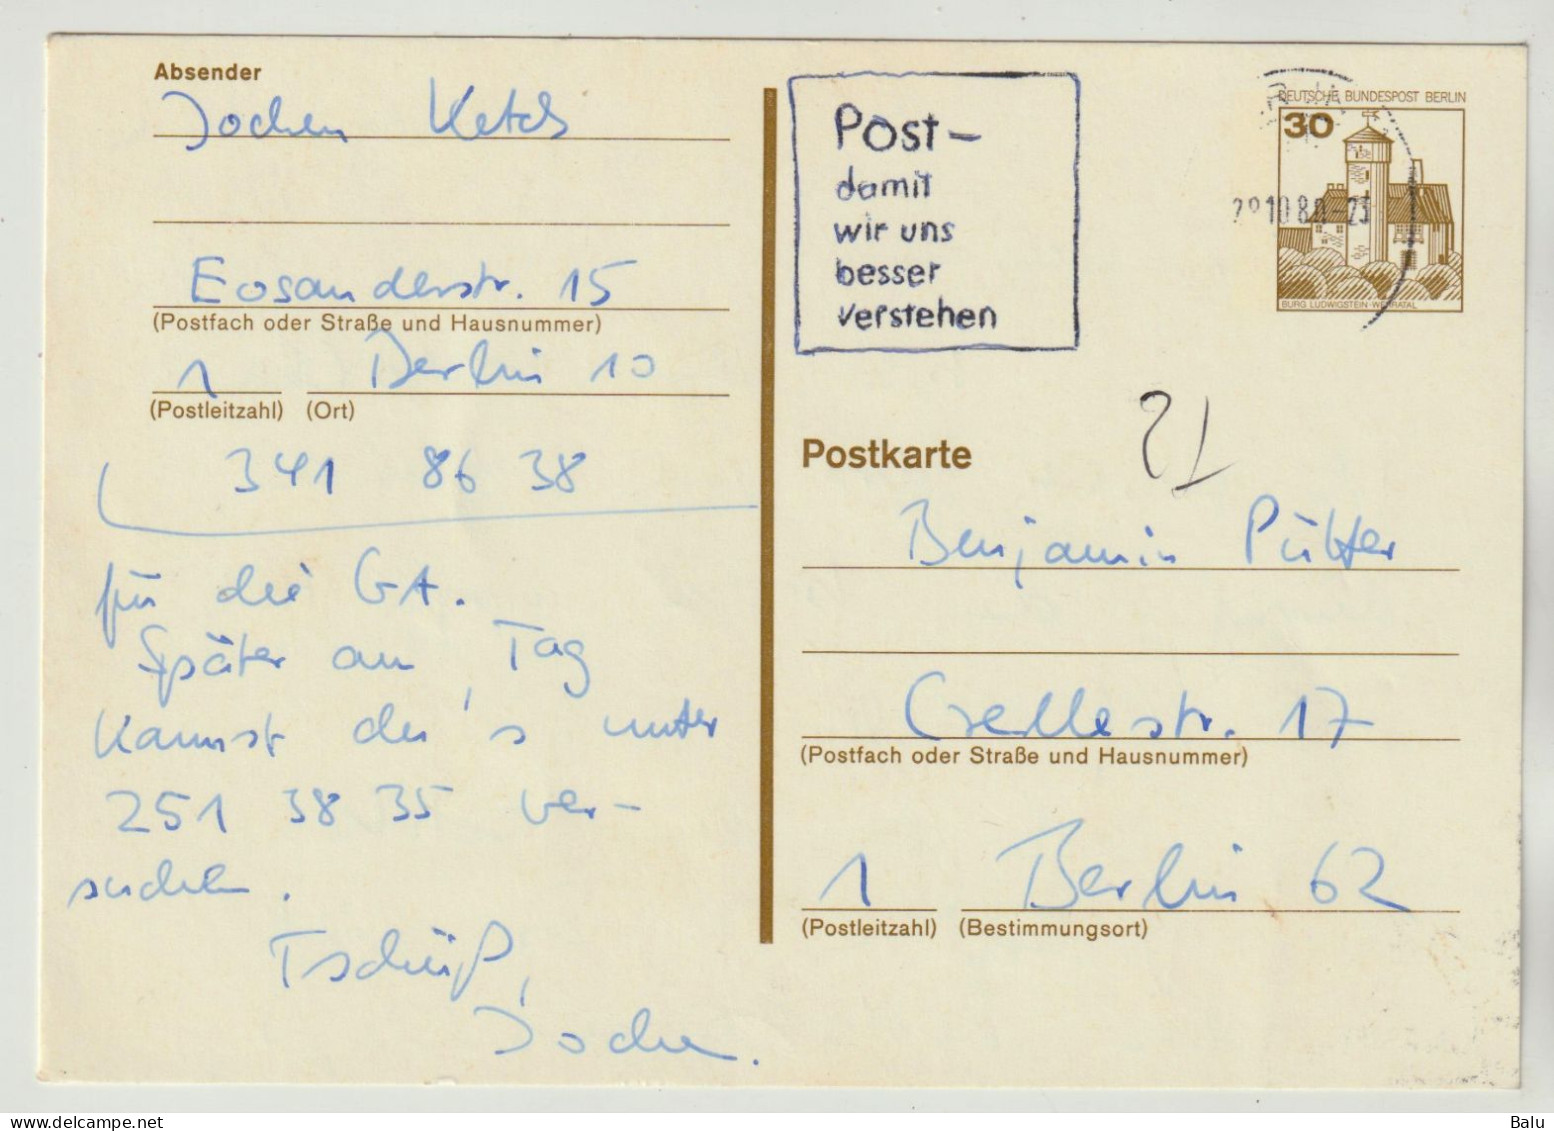 Absender
Jochen Ketels
Eosanderstr. 15
(Postfach oder Straße und Hausnummer)
1 Berlin 10
(Postleitzahl) (Ort)
341 86 38
für die GA.
Später am Tag
kannst du's unter
251 38 35 ver-
suchen.
Tschüß,
Jochen.
Post –
damit
wir uns
besser
verstehen
DEUTSCHE BUNDESPOST BERLIN
30
BURG LUDWIGSTEIN · WERRATAL
10.80-23
Postkarte
21
Benjamin Pütter
Gsellestr. 17
(Postfach oder Straße und Hausnummer)
1 Berlin 62
(Postleitzahl) (Bestimmungsort)
www.delcampe.net
Balu